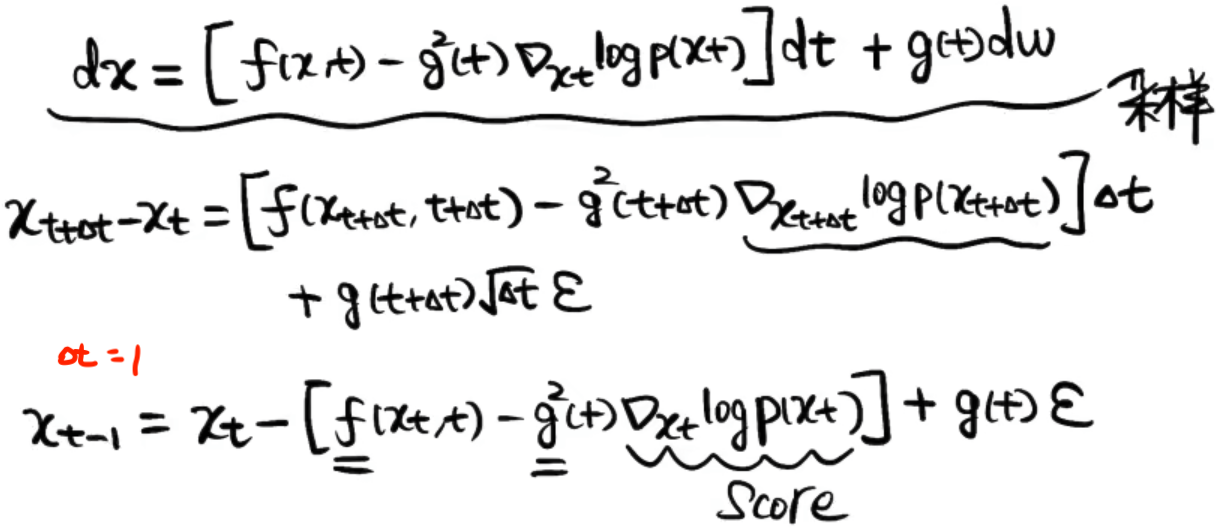 dx = [f(x,t) - g²(t)∇ₓₜ log p(xt)]dt + g(t)dw
采样
x_{t+Δt} - x_t = [f(x_{t+Δt}, t+Δt) - g²(t+Δt)∇_{x_{t+Δt}} log p(x_{t+Δt})]Δt
+ g(t+Δt)√Δt ε
Δt = 1
x_{t-1} = x_t - [f(x_t,t) - g²(t)∇_{x_t} log p(x_t)] + g(t) ε
Score